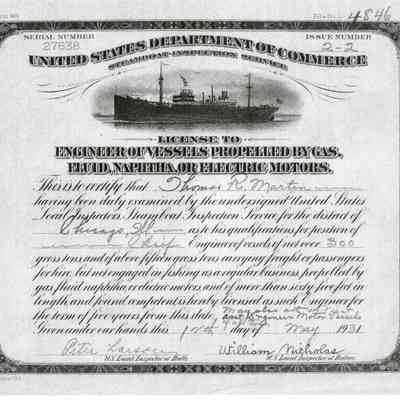 4846
SERIAL NUMBER
27538
ISSUE NUMBER
2-2
UNITED STATES DEPARTMENT OF COMMERCE
STEAMBOAT INSPECTION SERVICE
LICENSE TO
ENGINEER OF VESSELS PROPELLED BY GAS,
FLUID, NAPHTHA, OR ELECTRIC MOTORS.
This is to certify that Thomas R. Martin
having been duly examined by the undersigned United States
Local Inspectors, Steamboat Inspection Service for the district of
Chicago, Ill as to his qualifications for position of
Chief Engineer of vessels of not over 300
gross tons and of above fifteen gross tons carrying freight or passengers
for hire, but not engaged in fishing as a regular business, propelled by
gas, fluid, naphtha, or electric motors, and of more than sixty-five feet in
length, and found competent is hereby licensed as such Engineer for
the term of five years from this date, May also act as
Engineer Motor Vessels
Given under our hands this 14th day of May 1931
Peter Larson
William Nicholas
U.S. Local Inspector of Hulls.
U.S. Local Inspector of Boilers.